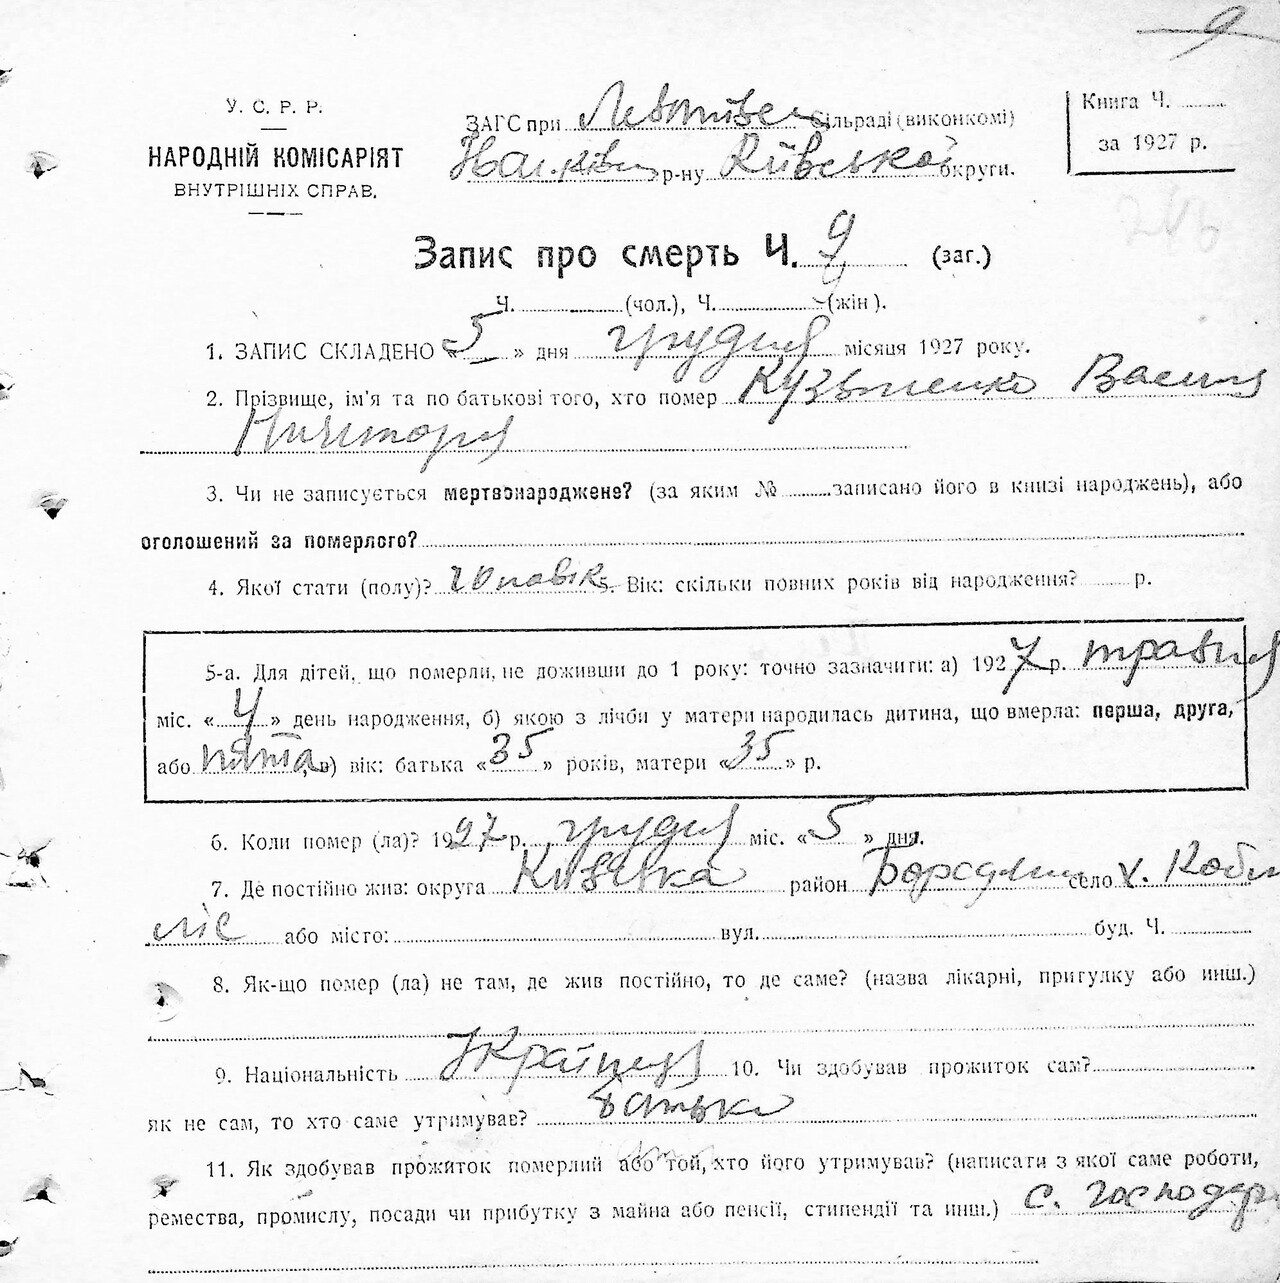 9
У. С. Р. Р.
НАРОДНІЙ КОМІСАРІЯТ
ВНУТРІШНІХ СПРАВ.
ЗАГС при сільраді (виконкомі)
р-ну Київської округи.
Книга Ч.
за 1927 р.
Запис про смерть Ч. 9 (заг.)
Ч. (чол.), Ч. (жін).
1. ЗАПИС СКЛАДЕНО « 5 » дня грудня місяця 1927 року.
2. Прізвище, ім'я та по батькові того, хто помер Кузьменко Василь
3. Чи не записується мертвонароджене? (за яким № записано його в книзі народжень), або
оголошений за померлого?
4. Якої стати (полу)? чоловік 5. Вік: скільки повних років від народження? р.
5-а. Для дітей, що померли, не доживши до 1 року: точно зазначити: а) 1927 р. травня
міс. « 4 » день народження, б) якою з лічби у матери народилась дитина, що вмерла: перша, друга,
або пята в) вік: батька « 35 » років, матери « 35 » р.
6. Коли помер (ла)? 1927 р. грудня міс. « 5 » дня.
7. Де постійно жив: округа Київська район село х.
або місто: вул. буд. Ч.
8. Як-що помер (ла) не там, де жив постійно, то де саме? (назва лікарні, пригулку або инш.)
9. Національність Українец 10. Чи здобував прожиток сам?
як не сам, то хто саме утримував? батько
11. Як здобував прожиток померлий або той, хто його утримував? (написати з якої саме роботи,
ремества, промислу, посади чи прибутку з майна або пенсії, стипендії та инш.) с. господар